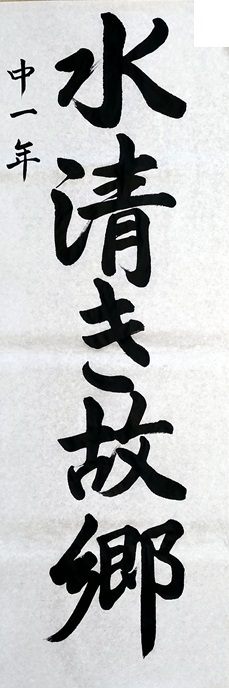 水清き故郷
中一年